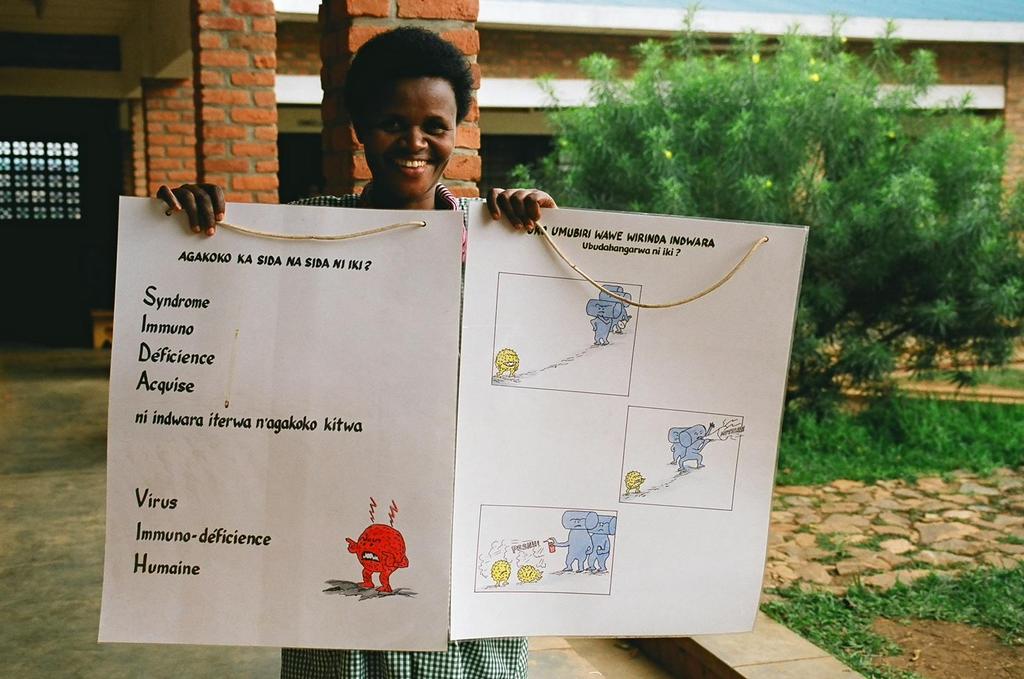 AGAKOKO KA SIDA NA SIDA NI IKI?
Syndrome
Immuno
Déficience
Acquise
ni indwara iterwa n'agakoko kitwa
Virus
Immuno-déficience
Humaine
UMUBIRI WAWE WIRINDA INDWARA
Ubudahangarwa ni iki?